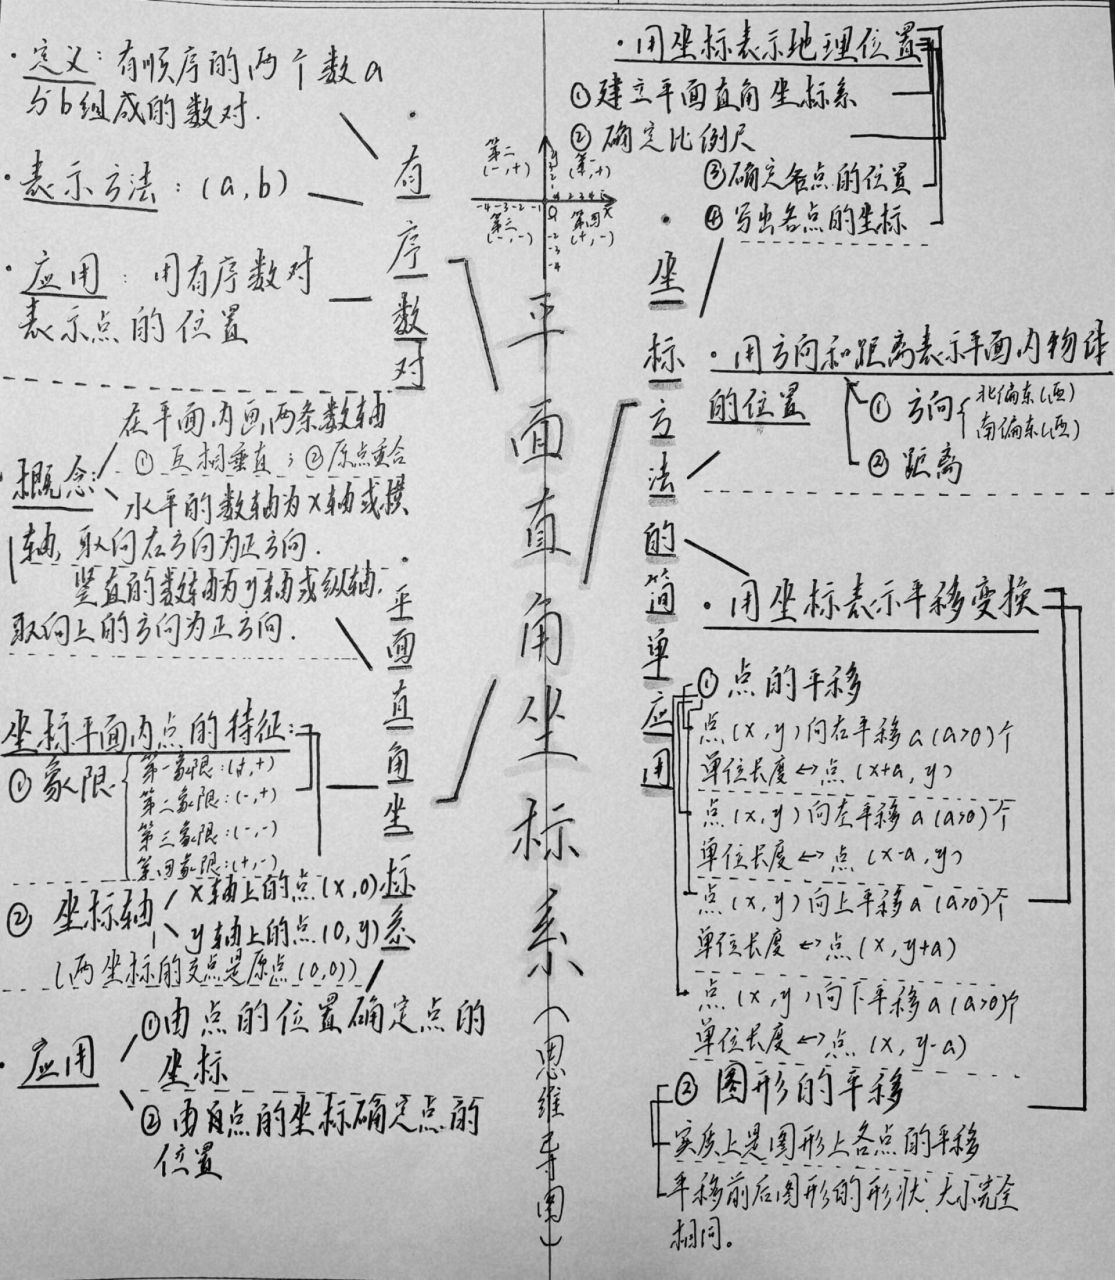 ·定义:有顺序的两个数a
与b组成的数对.
·表示方法:(a,b)
·应用:用有序数对
表示点的位置
·有序数对
·概念:
在平面内画两条数轴
①互相垂直;②原点重合
水平的数轴为x轴或横
轴,取向右方向为正方向.
竖直的数轴为y轴或纵轴,
取向上的方向为正方向.
·平面直角坐标系
坐标平面内点的特征:
①象限
第一象限:(+,+)
第二象限:(-,+)
第三象限:(-,-)
第四象限:(+,-)
②坐标轴
x轴上的点(x,0)
y轴上的点(0,y)
(两坐标的交点是原点(0,0))
·应用
①由点的位置确定点的
坐标
②由点的坐标确定点的
位置
第二
(-,+)
(第一
(+,+)
y
3
2
1
-4-3-2-1
0
1 2 3 4
x
第三
(-,-)
第四
(+,-)
-2
-3
-4
平面直角坐标系(思维导图)
·坐标方法的简单应用
·用坐标表示地理位置
①建立平面直角坐标系
②确定比例尺
③确定各点的位置
④写出各点的坐标
·用方向和距离表示平面内物体
的位置
①方向
北偏东(西)
南偏东(西)
②距离
·用坐标表示平移变换
①点的平移
点(x,y)向右平移a(a>0)个
单位长度↔点(x+a,y)
点(x,y)向左平移a(a>0)个
单位长度↔点(x-a,y)
点(x,y)向上平移a(a>0)个
单位长度↔点(x,y+a)
点(x,y)向下平移a(a>0)个
单位长度↔点(x,y-a)
②图形的平移
实质上是图形上各点的平移
平移前后图形的形状、大小完全
相同。